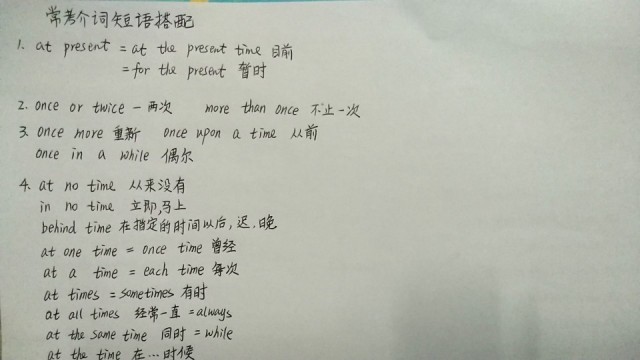 常考介词短语搭配
1. at present = at the present time 目前
= for the present 暂时
2. once or twice 一两次 more than once 不止一次
3. once more 重新 once upon a time 从前
once in a while 偶尔
4. at no time 从来没有
in no time 立即,马上
behind time 在指定的时间以后,迟.晚
at one time = once time 曾经
at a time = each time 每次
at times = sometimes 有时
at all times 经常一直 = always
at the same time 同时 = while
at the time 在…时候